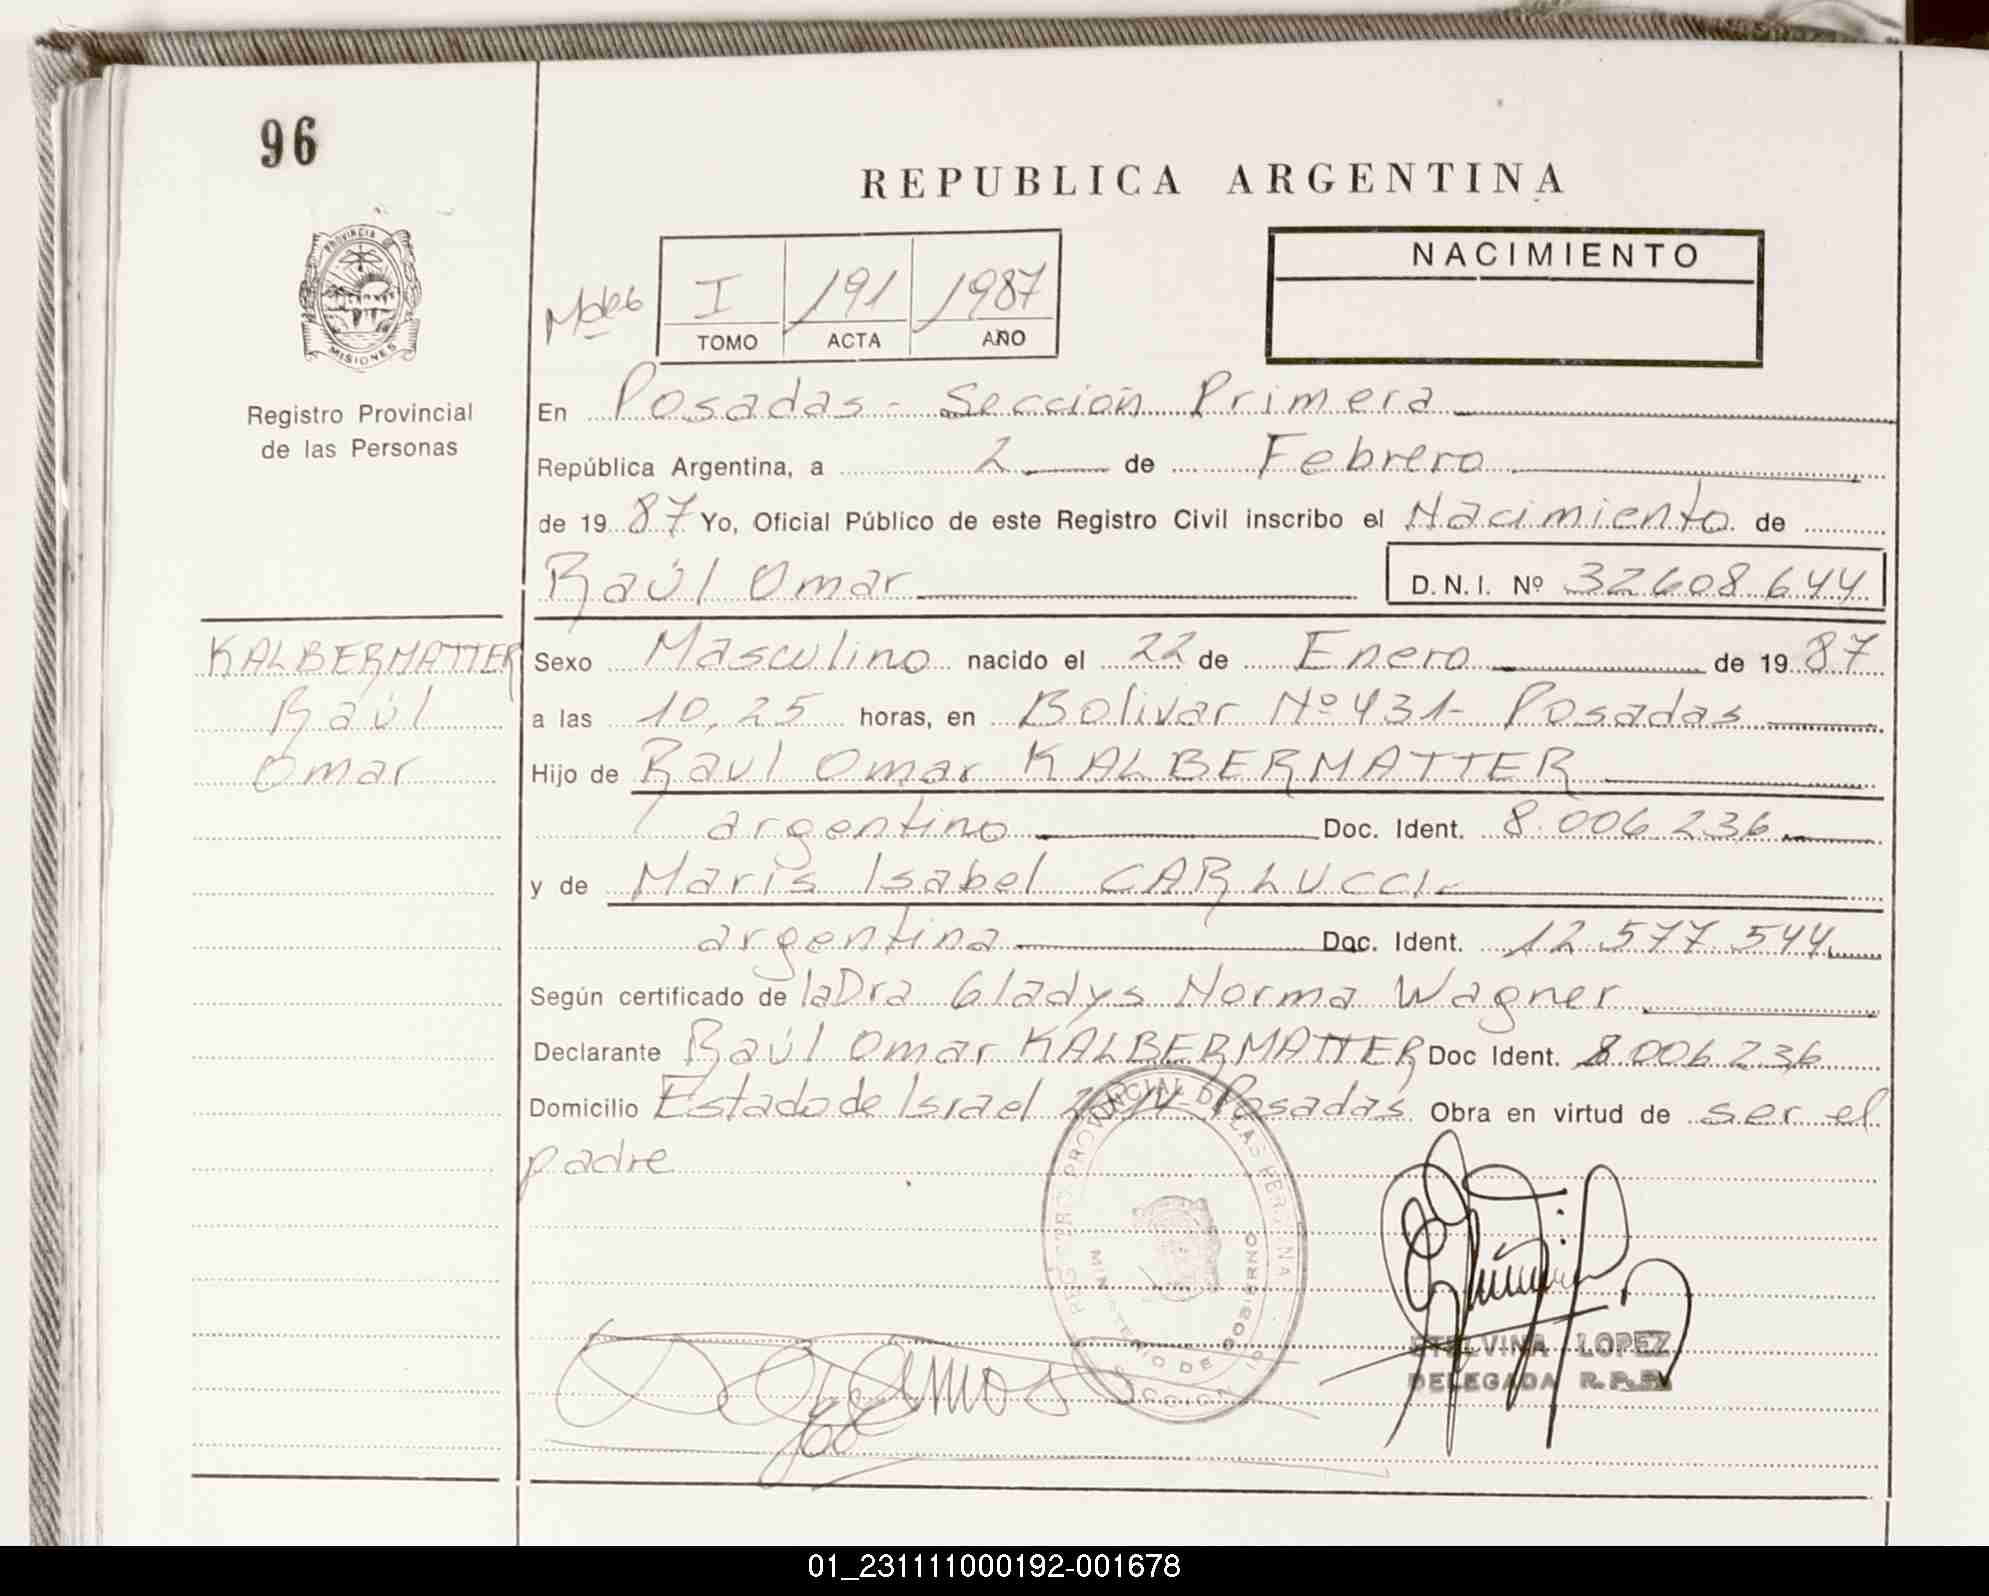 96
PROVINCIA
MISIONES
Registro Provincial
de las Personas
REPUBLICA ARGENTINA
NACIMIENTO
I 191 1987
TOMO ACTA AÑO
En Posadas - Sección Primera
República Argentina, a 2 de Febrero
de 19 87 Yo, Oficial Público de este Registro Civil inscribo el Nacimiento de
Raúl Omar D.N.I. Nº 32608644
KALBERMATTER
Raúl
Omar
Sexo Masculino nacido el 22 de Enero de 19 87
a las 10,25 horas, en Bolivar Nº 431- Posadas
Hijo de Raul Omar KALBERMATTER
argentino Doc. Ident. 8.006.236
y de Maris Isabel CARLUCCI
argentina Doc. Ident. 12.577.544
Según certificado de la Dra Gladys Norma Wagner
Declarante Raúl Omar KALBERMATTER Doc Ident. 8.006.236
Domicilio Estado de Israel Posadas Obra en virtud de ser el
padre
MINISTERIO DE GOBIERNO
ETELVINA LOPEZ
DELEGADA R.P.P.
01_231111000192-001678